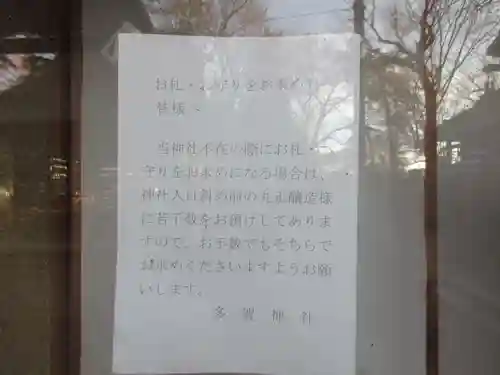 お札・お守りをお求めの
皆様へ
当神社不在の際にお札・
守りをお求めになる場合は、
神社入口斜め前の元正醸造様
に若干数をお預けしてありま
すので、お手数でもそちらで
お求めくださいますようお願
いします。
多賀神社